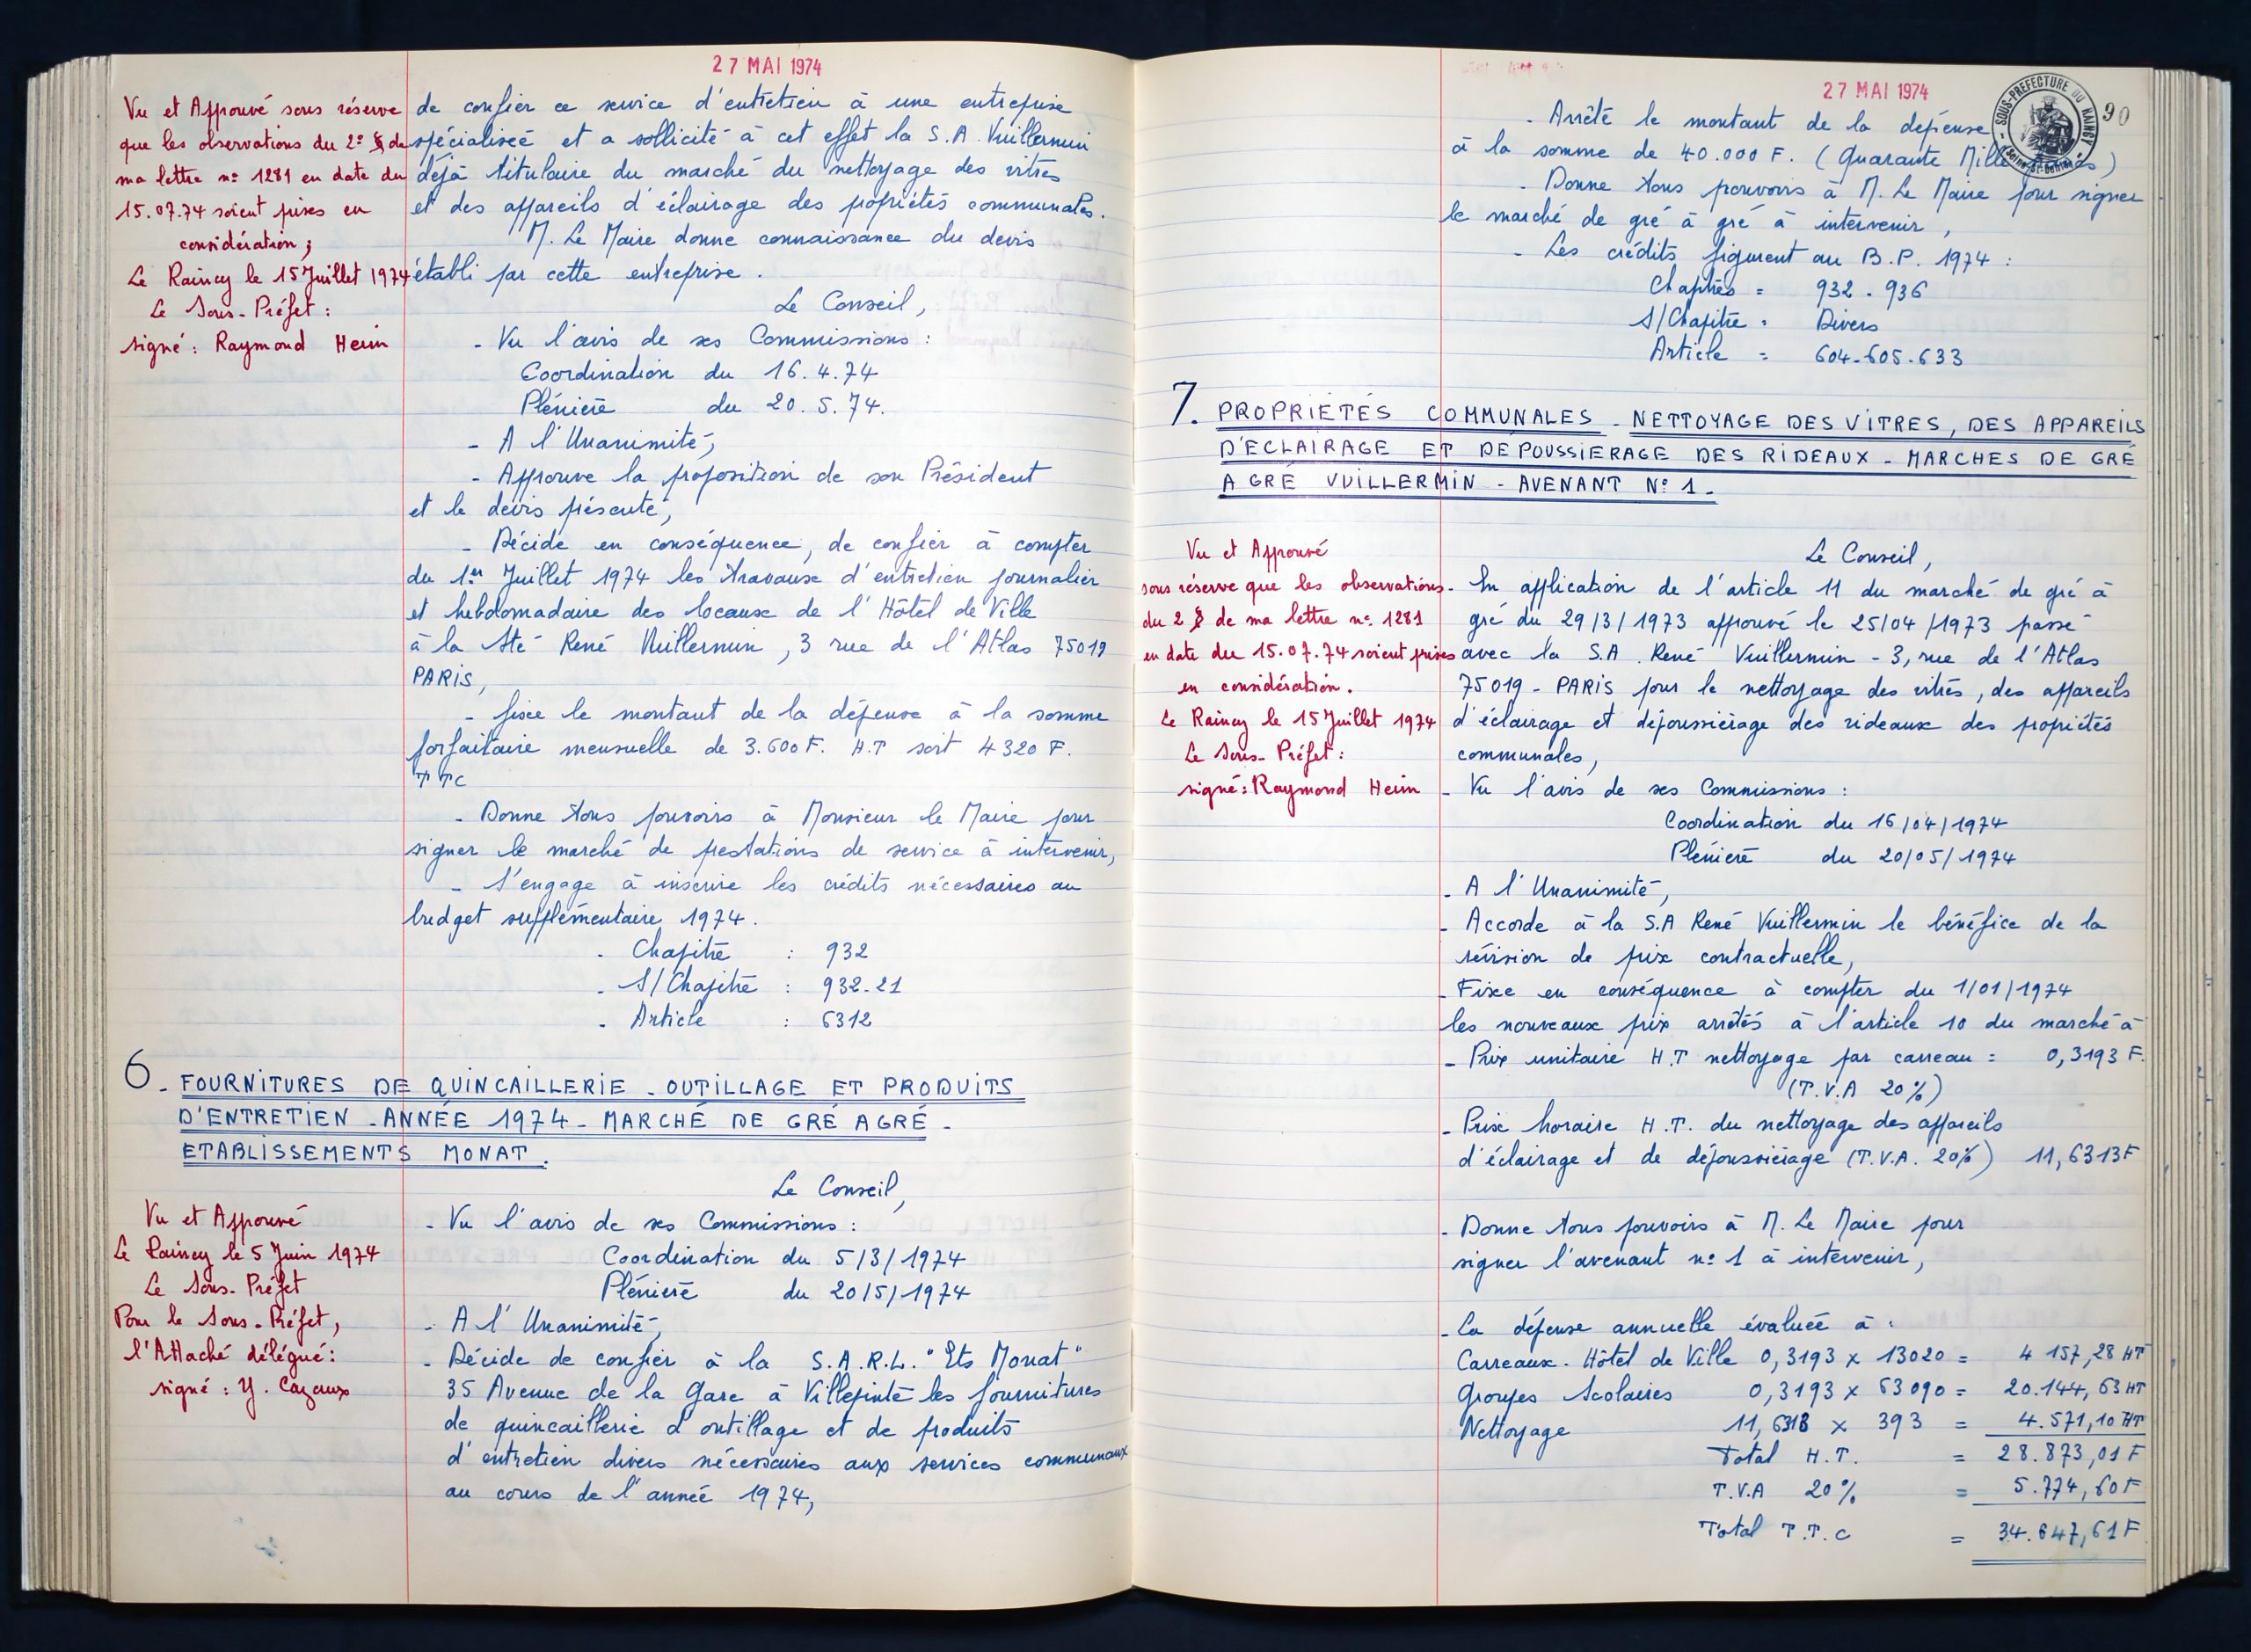 27 MAI 1974
Vu et Approuvé sous réserve
que les observations du 2e § de
ma lettre n° 1281 en date du
15.07.74 soient prises en
considération ;
Le Raincy le 15 Juillet 1974
Le Sous-Préfet :
signé : Raymond Heim
de confier ce service d'entretien à une entreprise
spécialisée et a sollicité à cet effet la S.A. Vuillermin
déjà titulaire du marché du nettoyage des vitres
et des appareils d'éclairage des propriétés communales.
M. Le Maire donne connaissance du devis
établi par cette entreprise.
Le Conseil,
- Vu l'avis de ses Commissions :
Coordination du 16.4.74
Plénière du 20.5.74.
- A l'Unanimité,
- Approuve la proposition de son Président
et le devis présenté,
- Décide en conséquence, de confier à compter
du 1er Juillet 1974 les travaux d'entretien journalier
et hebdomadaire des locaux de l'Hôtel de Ville
à la Sté René Vuillermin, 3 rue de l'Atlas 75019
PARIS,
- fixe le montant de la dépense à la somme
forfaitaire mensuelle de 3.600 F. H.T soit 4320 F.
TTC
- Donne tous pouvoirs à Monsieur le Maire pour
signer le marché de prestations de service à intervenir,
- S'engage à inscrire les crédits nécessaires au
budget supplémentaire 1974.
- Chapitre : 932
- S/Chapitre : 932-21
- Article : 6312
6 - FOURNITURES DE QUINCAILLERIE - OUTILLAGE ET PRODUITS
D'ENTRETIEN - ANNÉE 1974 - MARCHÉ DE GRÉ A GRÉ -
ETABLISSEMENTS MONAT.
Vu et Approuvé
Le Raincy le 5 Juin 1974
Le Sous-Préfet
Pour le Sous-Préfet,
l'Attaché délégué :
signé : Y. Cazaux
Le Conseil,
- Vu l'avis de ses Commissions :
Coordination du 5/3/1974
Plénière du 20/5/1974
- A l'Unanimité,
- Décide de confier à la S.A.R.L. "Ets Monat"
35 Avenue de la Gare à Villepinte les fournitures
de quincaillerie d'outillage et de produits
d'entretien divers nécessaires aux services communaux
au cours de l'année 1974,
27 MAI 1974
90
SOUS-PREFECTURE DU RAINCY
- Arrête le montant de la dépense
à la somme de 40.000 F. (Quarante Mille Francs)
- Donne tous pouvoirs à M. Le Maire pour signer
le marché de gré à gré à intervenir,
- Les crédits figurent au B.P. 1974 :
Chapitres = 932 - 936
S/Chapitre = Divers
Article = 604-605-633
7. PROPRIÉTÉS COMMUNALES - NETTOYAGE DES VITRES, DES APPAREILS
D'ECLAIRAGE ET DÉPOUSSIERAGE DES RIDEAUX - MARCHES DE GRÉ
A GRÉ VUILLERMIN - AVENANT N° 1.
Vu et Approuvé
sous réserve que les observations
du 2 § de ma lettre n° 1281
en date du 15.07.74 soient prises
en considération.
Le Raincy le 15 Juillet 1974
Le Sous-Préfet :
signé : Raymond Heim
Le Conseil,
- En application de l'article 11 du marché de gré à
gré du 29/3/1973 approuvé le 25/04/1973 passé
avec la S.A. René Vuillermin - 3, rue de l'Atlas
75019 - PARIS pour le nettoyage des vitres, des appareils
d'éclairage et dépoussièrage des rideaux des propriétés
communales,
- Vu l'avis de ses Commissions :
Coordination du 16/04/1974
Plénière du 20/05/1974
- A l'Unanimité,
- Accorde à la S.A René Vuillermin le bénéfice de la
révision de prix contractuelle,
- Fixe en conséquence à compter du 1/01/1974
les nouveaux prix arrêtés à l'article 10 du marché à
- Prix unitaire H.T nettoyage par carreau = 0,3193 F.
(T.V.A 20%)
- Prix horaire H.T. du nettoyage des appareils
d'éclairage et de dépoussièrage (T.V.A. 20%) 11,6313 F
- Donne tous pouvoirs à M. Le Maire pour
signer l'avenant n° 1 à intervenir,
- La dépense annuelle évaluée à :
Carreaux - Hôtel de Ville 0,3193 x 13020 = 4 157,28 HT
Groupes Scolaires 0,3193 x 63090 = 20.144,63 HT
Nettoyage 11,6313 x 393 = 4.571,10 HT
Total H.T. = 28.873,01 F
T.V.A 20% = 5.774,60 F
Total T.T.C = 34.647,61 F